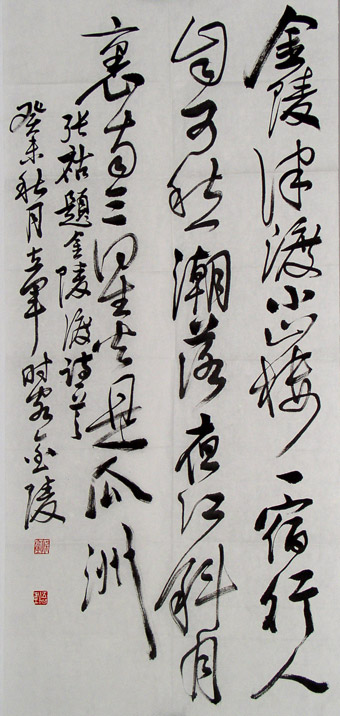 金陵津渡小山楼一宿行人
自可愁潮落夜江斜月
裏两三星火是瓜洲
张祜題金陵渡诗
癸未秋月立军时客金陵